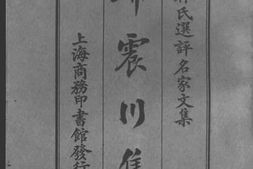 氏選評名家文集
震川集
上海商務印書館發行